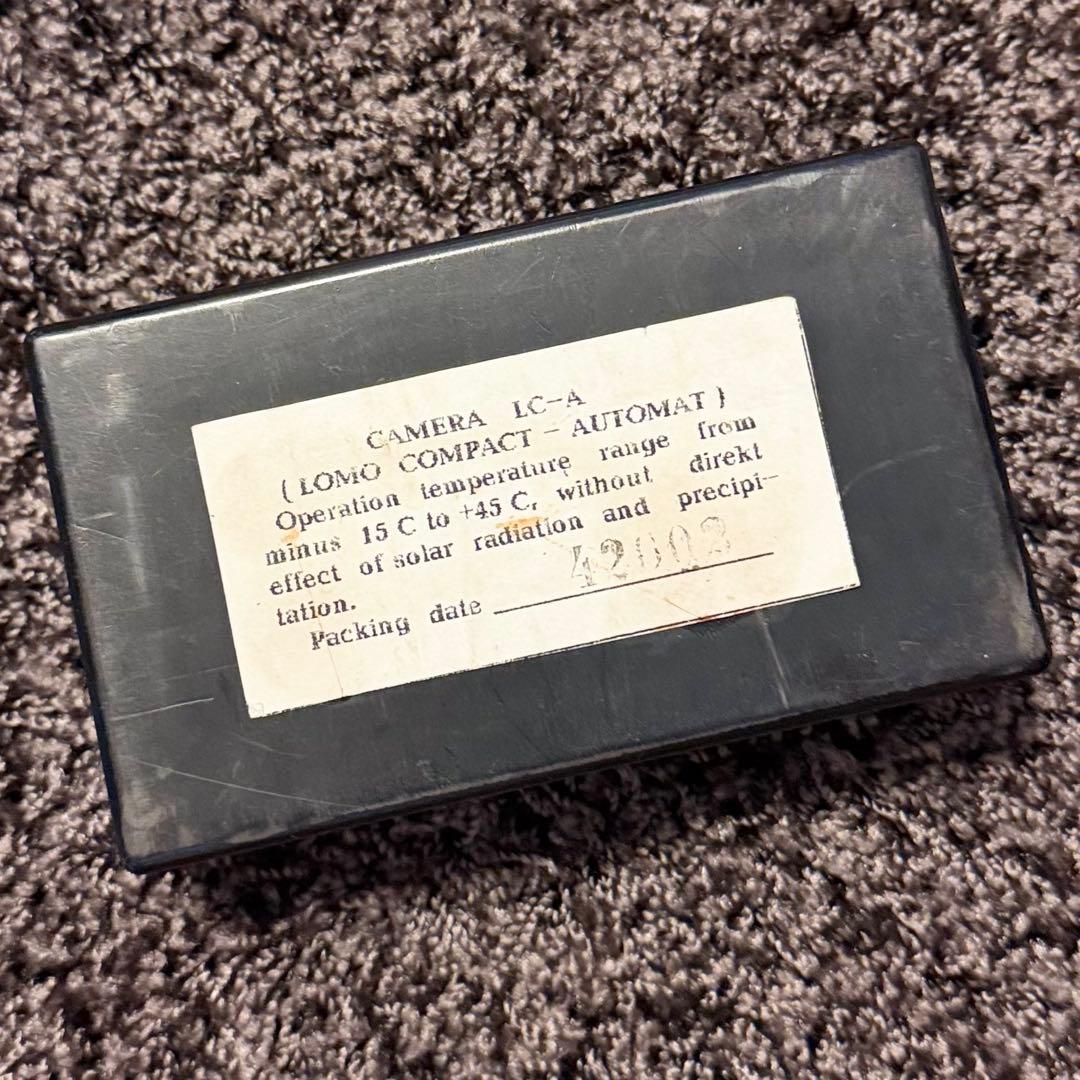 CAMERA LC-A
(LOMO COMPACT - AUTOMAT)
Operation temperature range from
minus 15 C to +45 C, without direkt
effect of solar radiation and precipi-
tation.
Packing date